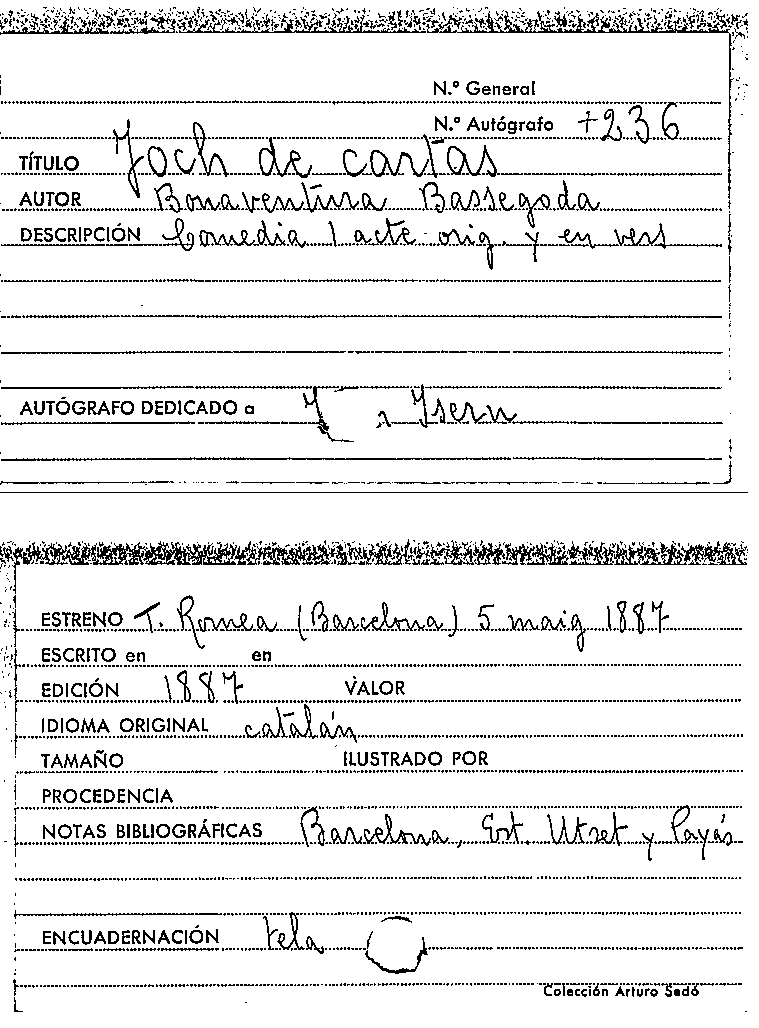 N.º General
N.º Autógrafo +236
TÍTULO Joch de cartas
AUTOR Bonaventura Bassegoda
DESCRIPCIÓN Comedia 1 acte orig. y en vers
AUTÓGRAFO DEDICADO a Isern
ESTRENO T. Romea (Barcelona) 5 maig 1887
ESCRITO en en
EDICIÓN 1887 VALOR
IDIOMA ORIGINAL catalán
TAMAÑO ILUSTRADO POR
PROCEDENCIA
NOTAS BIBLIOGRÁFICAS Barcelona, Est. Utset y Payás
ENCUADERNACIÓN tela
Colección Arturo Sedó